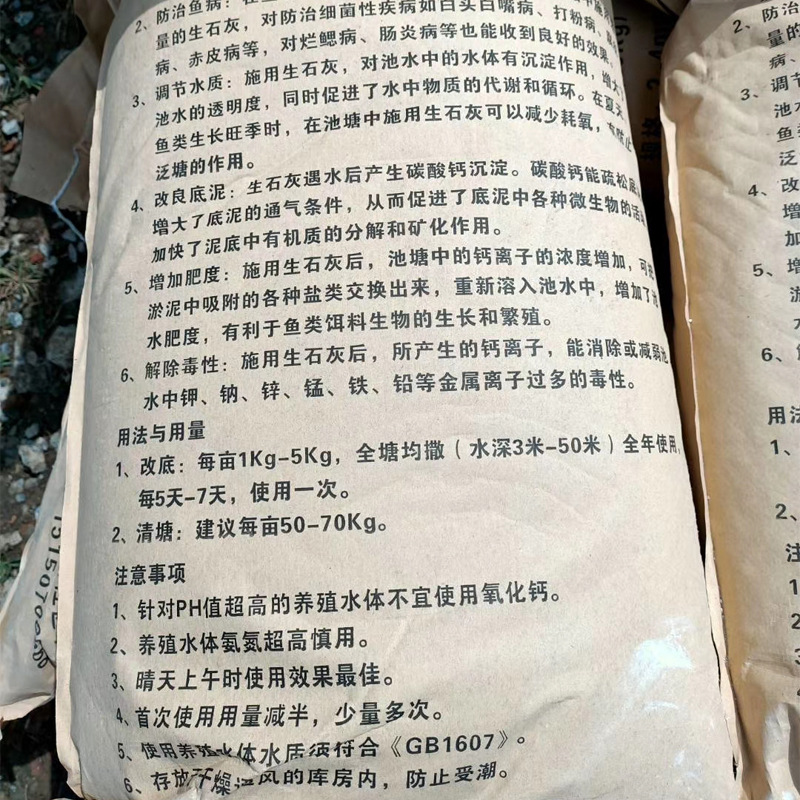 2、防治鱼病：在
量的生石灰，对防治细菌性疾病如白头白嘴病、打粉病、
病、赤皮病等，对烂鳃病、肠炎病等也能收到良好的效果。
3、调节水质：施用生石灰，对池水中的水体有沉淀作用，增大
池水的透明度，同时促进了水中物质的代谢和循环。在夏天
鱼类生长旺季时，在池塘中施用生石灰可以减少耗氧，有防止
泛塘的作用。
4、改良底泥：生石灰遇水后产生碳酸钙沉淀。碳酸钙能疏松底
增大了底泥的通气条件，从而促进了底泥中各种微生物的活
加快了泥底中有机质的分解和矿化作用。
5、增加肥度：施用生石灰后，池塘中的钙离子的浓度增加，可
淤泥中吸附的各种盐类交换出来，重新溶入池水中，增加了池
水肥度，有利于鱼类饵料生物的生长和繁殖。
6、解除毒性：施用生石灰后，所产生的钙离子，能消除或减弱池
水中钾、钠、锌、锰、铁、铅等金属离子过多的毒性。
用法与用量
1、改底：每亩1Kg-5Kg，全塘均撒（水深3米-50米）全年使用，
每5天-7天，使用一次。
2、清塘：建议每亩50-70Kg。
注意事项
1、针对PH值超高的养殖水体不宜使用氧化钙。
2、养殖水体氨氮超高慎用。
3、晴天上午时使用效果最佳。
4、首次使用用量减半，少量多次。
5、使用养殖水体水质须符合《GB1607》。
6、存放干燥通风的库房内，防止受潮。
2、防治
量的
病、
3、调节
池水
鱼类
泛塘
4、改
增
加
5、增
淤
水
6、解
水
用法
1、
2、
注
1
2
3